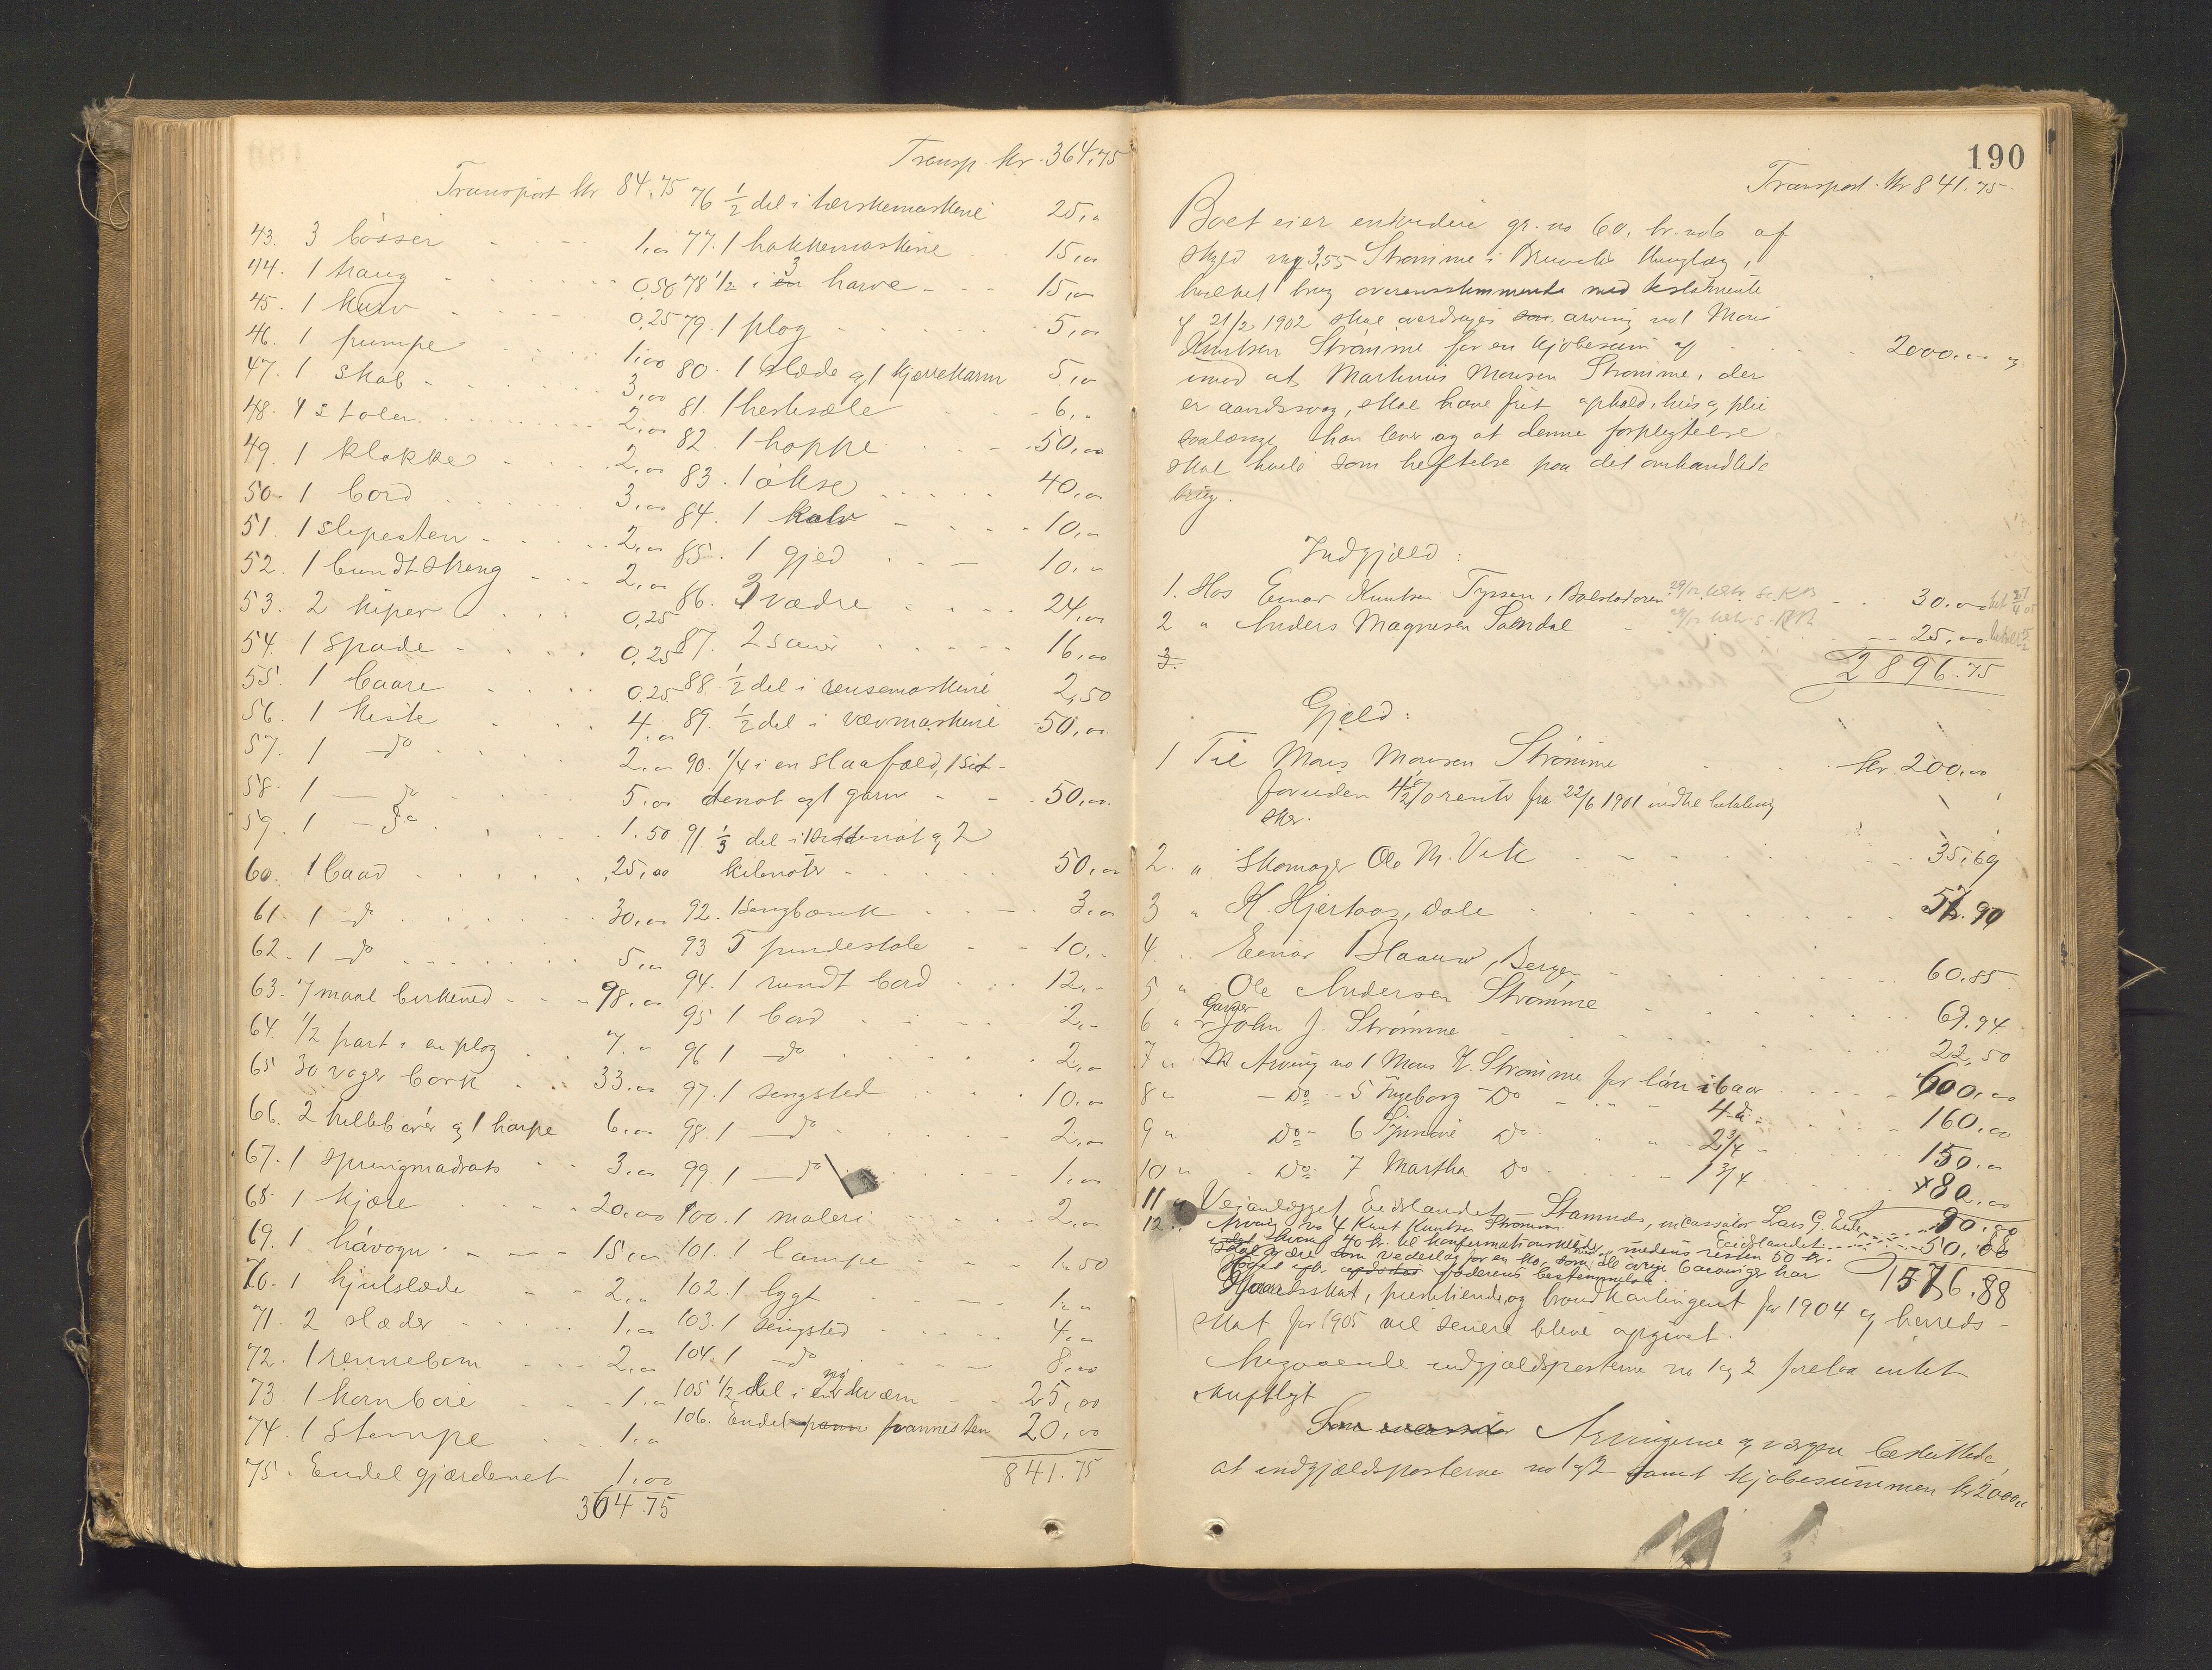 Transport kr 84.75
43. 3 bøsser 1,00
44. 1 traug 0,50
45. 1 kurv 0,25
46. 1 pumpe 1,00
47. 1 skab 3,00
48. 4 stoler 2,00
49. 1 klokke 2,00
50. 1 bord 3,00
51. 1 slipesten 2,00
52. 1 bundtstreng 2,00
53. 2 kiper 0,25
54. 1 spade 0,25
55. 1 baare 0,25
56. 1 kiste 4,00
57. 1 do 2,00
58. 1 do 5,00
59. 1 do 1.50
60. 1 baad 25,00
61 1 do 30,00
62. 1 do 5,00
63. 7 maal birkeved 98,00
64. 1/2 part i en plog 7.00
65 30 voger bark 33.00
66. 2 hellebører og 1 harpe 6,00
67. 1 springmadrats 3,00
68. 1 kjære 20,00
69. 1 håvogn 15,00
70. 1 hjulslæde 2,00
71. 2 slæder 1,00
72. 1 rennebom 2,00
73. 1 kornbøie 1,00
74. 1 stampe 1,00
75. Endel gjærdenet 1,00
364.75
Transp. kr. 364,75
76 1/2 del i tærskemaskine 25,00
77. 1 hakkemaskine 15,00
78 1/2 i en harve 15,00
79. 1 plog 5,00
80. 1 slæde og 1 kjærrekarm 5,00
81 1 hestesæle 6,00
82. 1 hoppe 50,00
83. 1 okse 40,00
84. 1 kalv 10,00
85. 1 gjed 10,00
86. 3 vædre 24,00
87. 2 sauer 16,00
88. 1/2 del i rensemaskine 2,50
89. 1/2 del i vævmaskine 50,00
90. 1/4 i en slaafæld, 1 sil-
denot og 1 garn 50,00
91. 1/3 del i sildenot og 2
kilenøter 50,00
92. 1 sengbænk 3,00
93 5 pindestole 10,00
94. 1 rundt bord 12,00
95 1 bord 2,00
96 1 do 2,00
97. 1 sengsted 10,00
98. 1 do 2,00
99. 1 do 1,00
100. 1 maleri 2,00
101. 1 lampe 1.50
102. 1 lygt 1,00
103. 1 sengsted 4,00
104. 1 do 8,00
105 1/2 del i en ny kværn 25,00
106. Endel pannesten 20,00
841.75
190
Transport. kr 841.75.
Boet eier endvidere gr. no 60. br. no 6 af
skyld mrk 3,55 Strømme i Bruvik thinglag,
hvilket brug overensstemmende med testamente
af 21/2 1902 skal overdrages arving no 1 Mons
Knutsen Strømme for en kjøbesum af 2000,00 og
imod at Martinus Monsen Strømme, der
er aandssvag, skal have frit ophold, hus og pleie
saalænge han lever og at denne forpligtelse
skal hvile som heftelse paa det omhandlede
brug.
Indgjæld:
1. Hos Einar Knutsen Tyssen, Bolstadøren 30,00
2 " Anders Magnusen Samdal 25,00
3.
2896.75
Gjæld:
1 Til Mons Monsen Strømme kr. 200,00
foruden 4 1/2 % rente fra 22/6 1901 indtil betaling
sker.
2. " Skomager Ole M. Vik 35,69
3 " K. Hjertaas, Dale 57.90
4. " Einar Blaauw, Bergen 60.85
5 " Ole Andersen Strømme 69.94
6 " Garver John J. Strømme 22,50
7 " Arving no 1 Mons K. Strømme for løn i 6 aar 600,00
8 " Do 5 Ingeborg Do 4 do 160.00
9 " Do 6 Do 2 3/4 150.00
10 " Do 7 Martha Do 1 3/4 80,00
11 " Veianlægget Eidslandet - Stamnes, incassator Lars G. Eide, Eidslandet 50,00
12 " Arving no 4 Knut Knutsen Strømme 90.00
40 kr. til konfirmationsklæder, medens resten 50 kr.
skal være vederlag for en ko, som alle øvrige 6 arvinger har
faaet efter faderens bestemmelse.
1576,88
skat, præstetiende og brandkontingent for 1904 og herreds-
skat for 1905 vil senere blive opgivet.
Angaaende indgjældsposterne no 1 og 2 forelaa intet
skriftligt
Arvingerne og vergen besluttede,
at indgjældsposterne no 1 og 2 samt kjøbesummen kr 2000,00